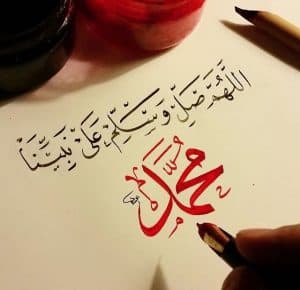 اللَّهُمَّ صَلِّ وَسَلِّمْ عَلَى نَبِيِّنَا
مُحَمَّد